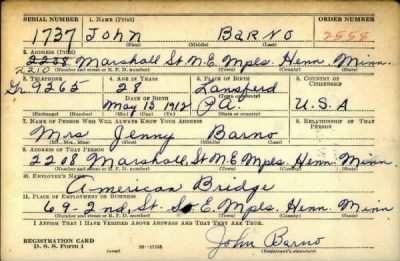 SERIAL NUMBER 1. NAME (Print) ORDER NUMBER
1737 John Barno 2558
(First) (Middle) (Last)
2. ADDRESS (Print)
2208 Marshall St. N.E. Mpls. Henn. Minn.
2210 (Number and street or R. F. D. number) (Town) (County) (State)
3. TELEPHONE 4. AGE IN YEARS 5. PLACE OF BIRTH 6. COUNTRY OF CITIZENSHIP
Gr. 9265 28 Lansford
DATE OF BIRTH
May 13 1912 PA. U.S.A
(Mo.) (Day) (Yr.) (State or country)
7. NAME OF PERSON WHO WILL ALWAYS KNOW YOUR ADDRESS 8. RELATIONSHIP OF THAT PERSON
Mrs Jenny Barno
(Mr., Mrs., Miss) (First) (Middle) (Last)
9. ADDRESS OF THAT PERSON
2208 Marshall St N.E. Mpls. Henn. Minn.
(Number and street or R. F. D. number) (Town) (County) (State)
10. EMPLOYER'S NAME
American Bridge
11. PLACE OF EMPLOYMENT OR BUSINESS
69-2nd, St. S.E. Mpls. Henn. Minn
(Number and street or R. F. D. number) (Town) (County) (State)
I AFFIRM THAT I HAVE VERIFIED ABOVE ANSWERS AND THAT THEY ARE TRUE.
REGISTRATION CARD
D. S. S. Form 1 John Barno
(Registrant's signature)